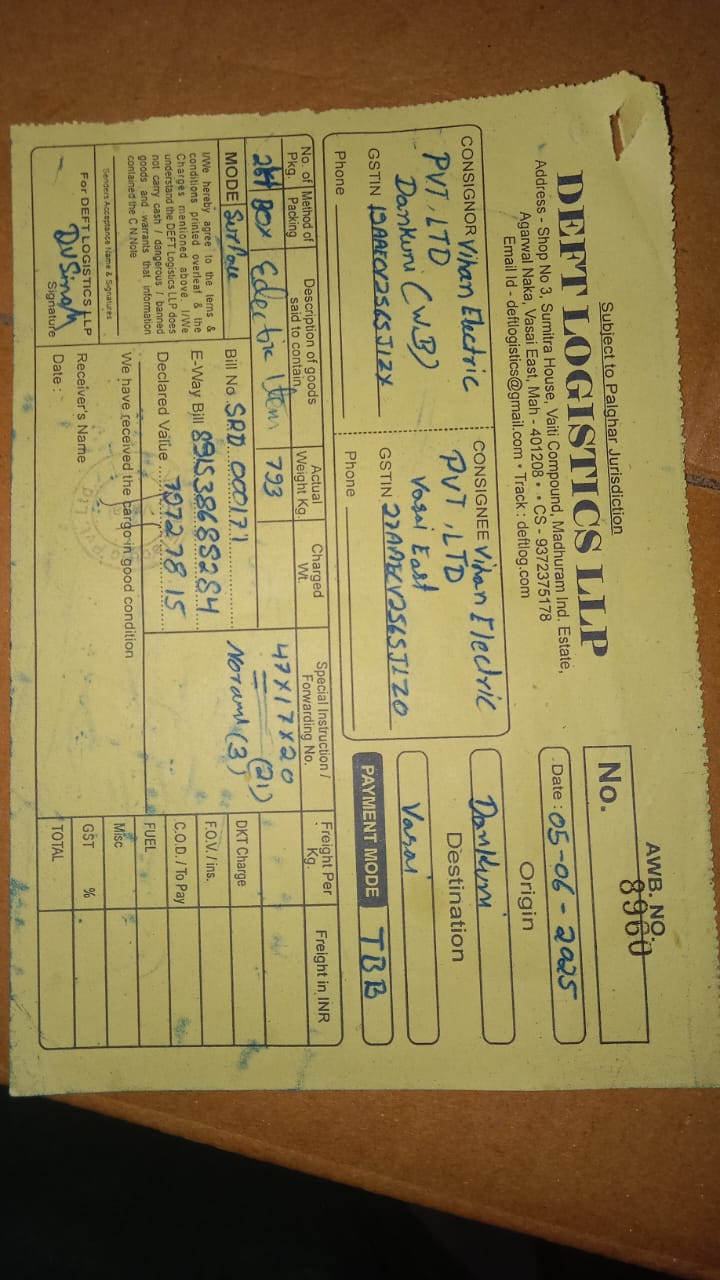 Subject to Palghar Jurisdiction
DEFT LOGISTICS LLP
Address - Shop No 3, Sumitra House, Vaiti Compound, Madhuram Ind. Estate,
Agarwal Naka, Vasai East, Mah - 401208 • • CS - 9372375178
Email Id - deftlogistics@gmail.com • Track : deftlog.com
AWB. NO.
No. 8960
Date : 05-06-2025
CONSIGNOR Vihan Electric
PVT, LTD
Dankuni (W.B)
GSTIN
Phone
CONSIGNEE Vihan Electric
PVT, LTD
Vasai East
GSTIN
Phone
Origin
Dankuni
Destination
Vasai
PAYMENT MODE TBB
No. of Pkg.
Method of Packing
Description of goods said to contain
Actual Weight Kg.
Charged Wt.
Special Instruction / Forwarding No.
Freight Per Kg.
Freight in INR
BOX
793
47X17X20
(21)
(3)
MODE Surface
Bill No SRD 000171
E-Way Bill
Declared Value
DKT Charge
F.O.V. / ins.
C.O.D. / To Pay
FUEL
Misc
GST %
TOTAL
I/We hereby agree to the terms &
conditions printed overleaf & the
Charges mentioned above. I/We
understand the DEFT Logistics LLP does
not carry cash / dangerous / banned
goods and warrants that information
contained the C.N.Note
Senders Acceptance Name & Signatures
For DEFT LOGISTICS LLP
DVSingh
Signature
We have received the cargo in good condition
Receiver's Name
Date :